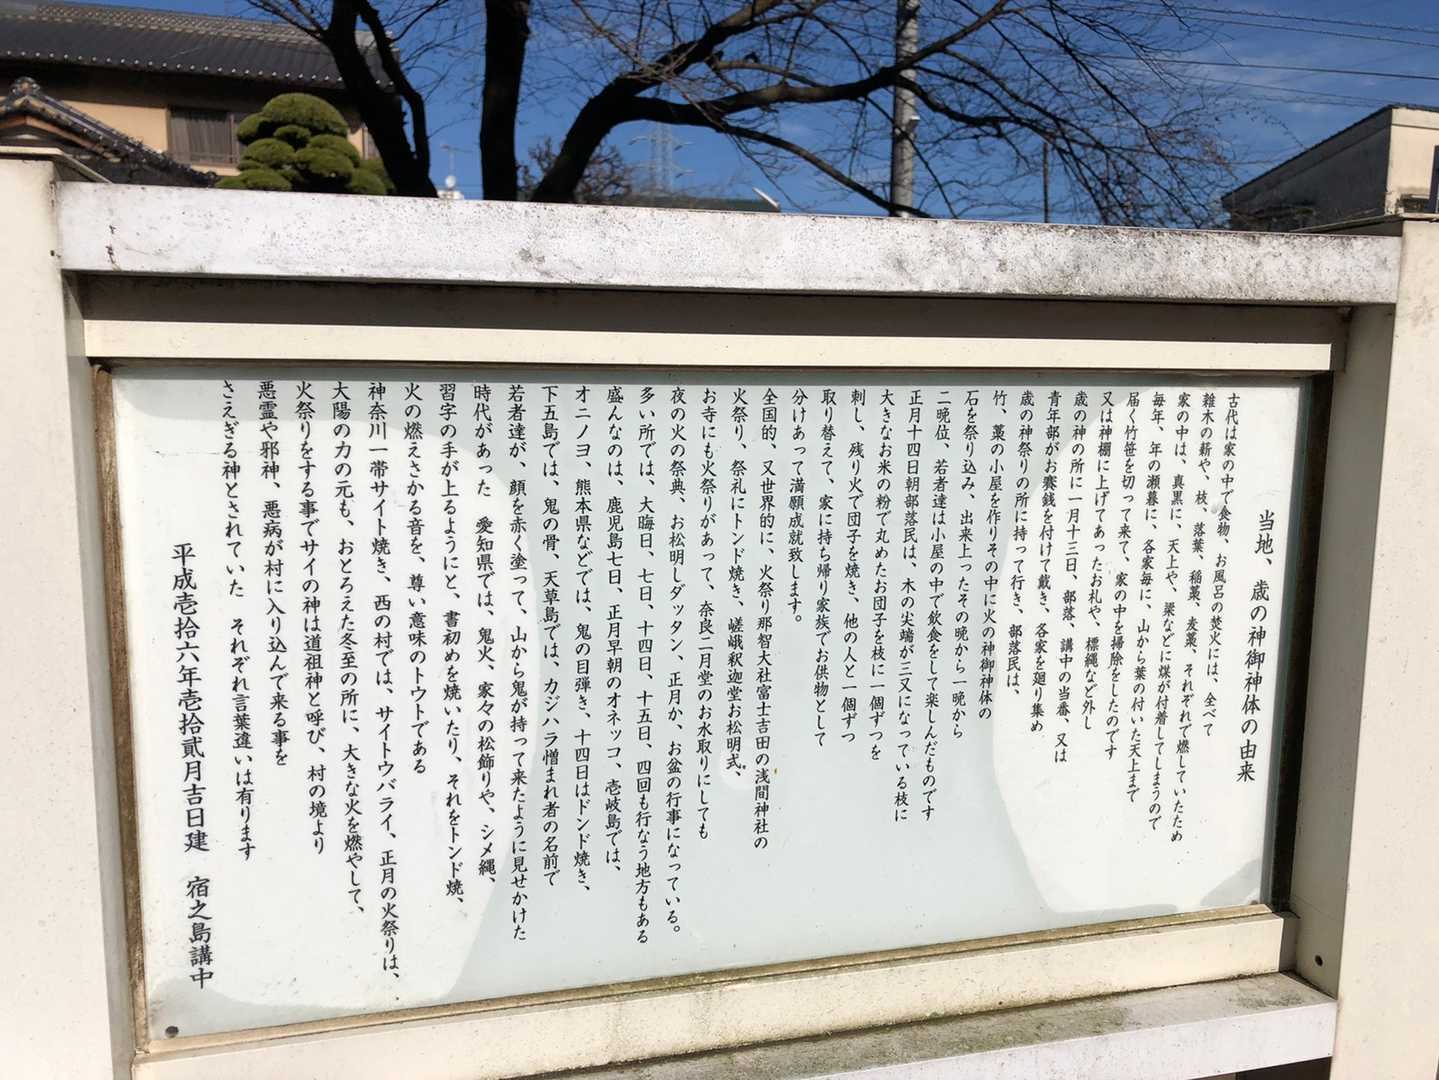 当地、歳の神御神体の由来
古代は家の中で食物、お風呂の焚火には、全べて
雑木の薪や、枝、落葉、稲藁、麦藁、それぞれで燃していたため
家の中は、真黒に、天上や、梁などに煤が付着してしまうので
毎年、年の瀬暮に、各家毎に、山から葉の付いた天上まで
届く竹笹を切って来て、家の中を掃除をしたのです
又は神棚に上げてあったお札や、標縄など外し
歳の神の所に一月十三日、部落、講中の当番、又は
青年部がお賽銭を付けて戴き、各家を廻り集め
歳の神祭りの所に持って行き、部落民は、
竹、藁の小屋を作りその中に火の神御神体の
石を祭り込み、出来上ったその晩から一晩から
二晩位、若者達は小屋の中で飲食をして楽しんだものです
正月十四日朝部落民は、木の尖端が三又になっている枝に
大きなお米の粉で丸めたお団子を枝に一個ずつを
刺し、残り火で団子を焼き、他の人と一個ずつ
取り替えて、家に持ち帰り家族でお供物として
分けあって満願成就致します。
全国的、又世界的に、火祭り那智大社富士吉田の浅間神社の
火祭り、祭礼にトンド焼き、嵯峨釈迦堂お松明式、
お寺にも火祭りがあって、奈良二月堂のお水取りにしても
夜の火の祭典、お松明しダッタン、正月か、お盆の行事になっている。
多い所では、大晦日、七日、十四日、十五日、四回も行なう地方もある
盛んなのは、鹿児島七日、正月早朝のオネッコ、壱岐島では、
オニノヨ、熊本県などでは、鬼の目弾き、十四日はドンド焼き、
下五島では、鬼の骨、天草島では、カジハラ憎まれ者の名前で
若者達が、顔を赤く塗って、山から鬼が持って来たように見せかけた
時代があった 愛知県では、鬼火、家々の松飾りや、シメ縄、
習字の手が上るようにと、書初めを焼いたり、それをトンド焼、
火の燃えさかる音を、尊い意味のトウトである
神奈川一帯サイト焼き、西の村では、サイトウバライ、正月の火祭りは、
大陽の力の元も、おとろえた冬至の所に、大きな火を燃やして、
火祭りをする事でサイの神は道祖神と呼び、村の境より
悪霊や邪神、悪病が村に入り込んで来る事を
さえぎる神とされていた それぞれ言葉違いは有ります
平成壱拾六年壱拾貳月吉日建 宿之島講中